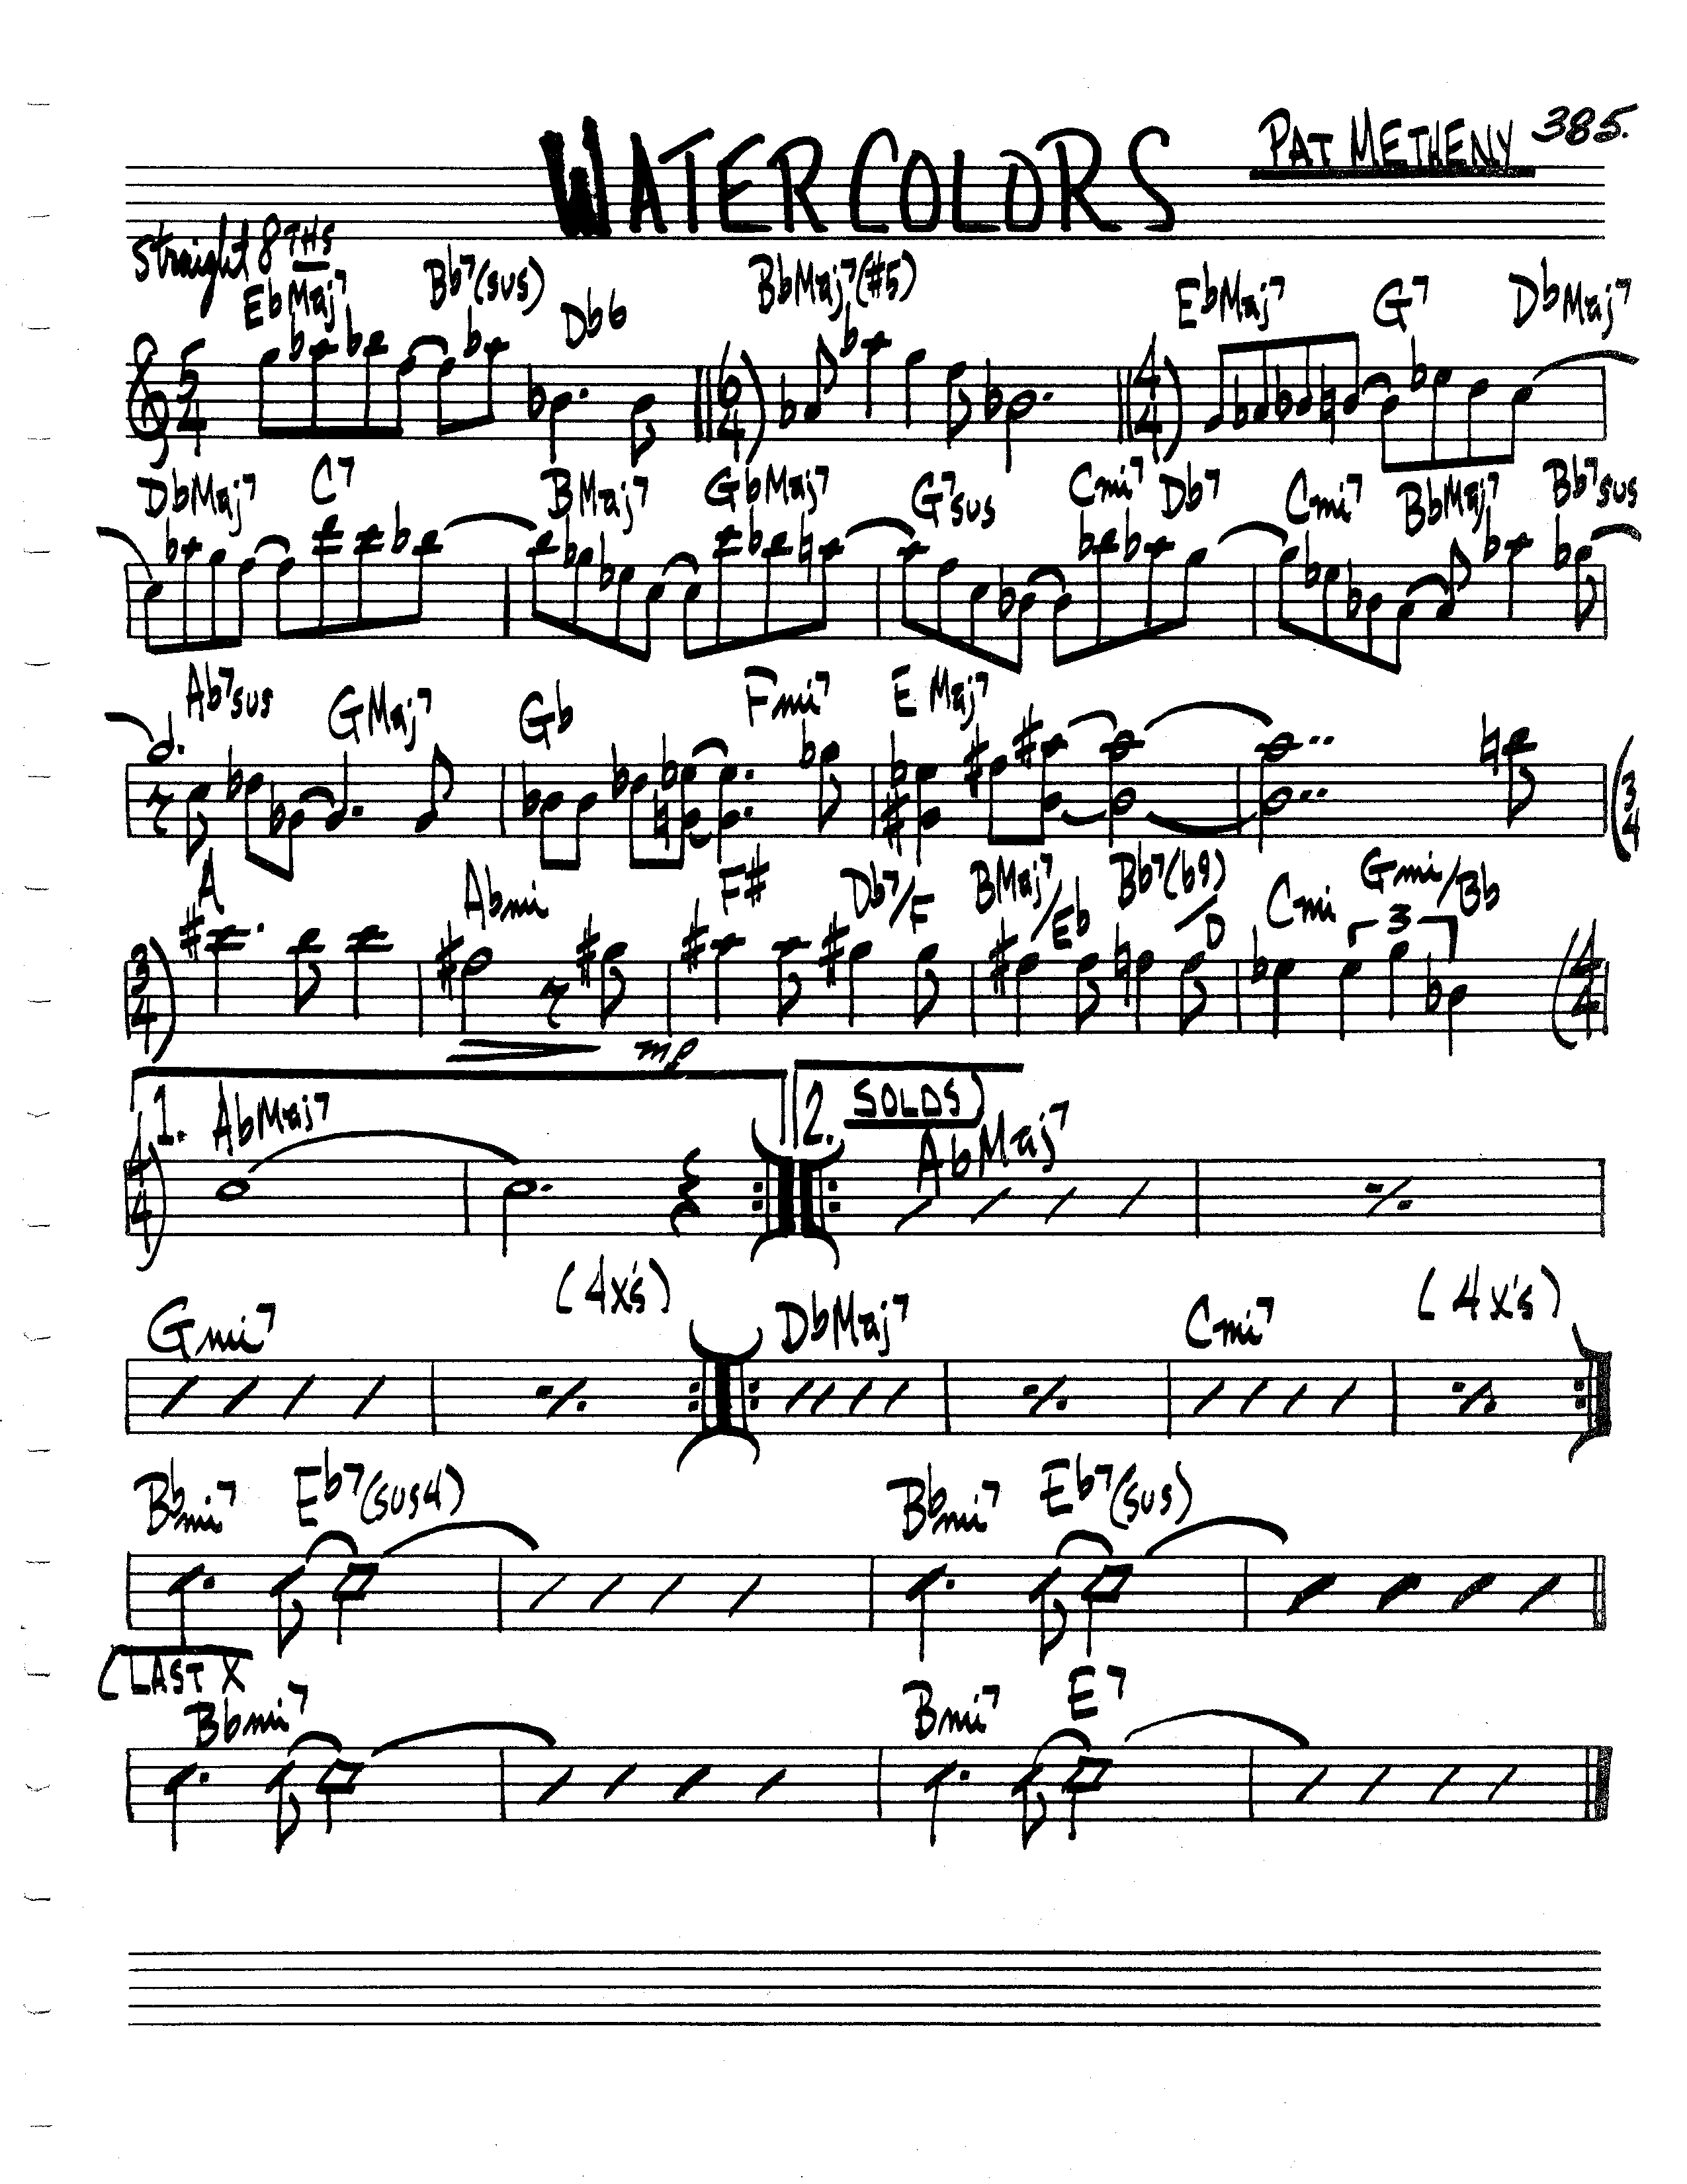 WATERCOLORS
PAT METHENY 385.
Straight 8THS
EbMaj7 Bb7(sus) Db6 BbMaj7(#5) EbMaj7 G7 DbMaj7
5/4 6/4) 4/4)
DbMaj7 C7 BMaj7 GbMaj7 G7sus Cmi7 Db7 Cmi7 BbMaj7 Bb7sus
Ab7sus GMaj7 Gb Fmi7 E Maj7
(3/4
A Abmi F# Db7/F BMaj7/Eb Bb7(b9)/D Cmi Gmi/Bb
3
3/4) (4/4
mp
1. AbMaj7 2. SOLOS) AbMaj7
4/4)
Gmi7 (4x's) DbMaj7 Cmi7 (4x's)
Bbmi7 Eb7(sus4) Bbmi7 Eb7(sus)
(LAST X
Bbmi7 Bmi7 E7